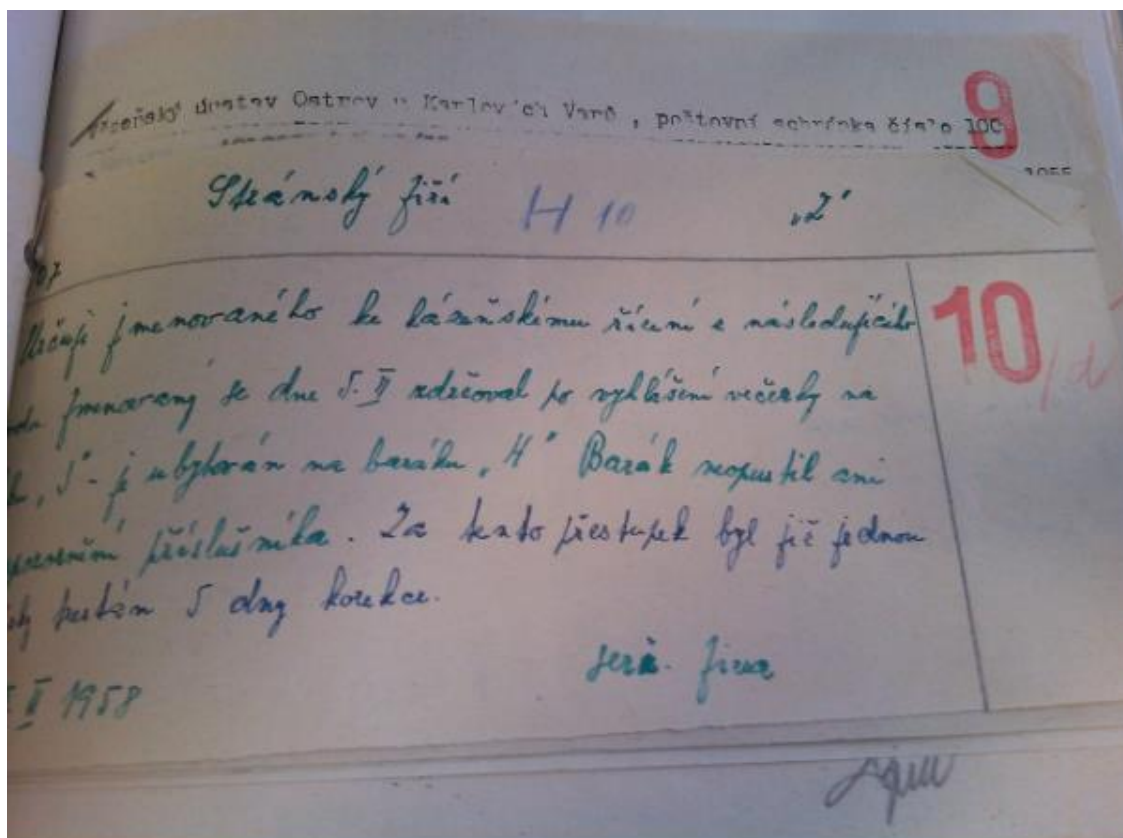 ústav Ostrov u Karlových Varů, poštovní schránka číslo 100
9
1955
Stránský Jiří H 10 „Z"
07
10
jmenovaného ke kázeňskému řízení z následujícího
jmenovaný se dne 5. II zdržoval po vyhlášení večerky na
„J" - je ubytován na baráku „H" Barák neopustil ani
příslušníka. Za tento přestupek byl již jednou
5 dny korekce.
II 1958